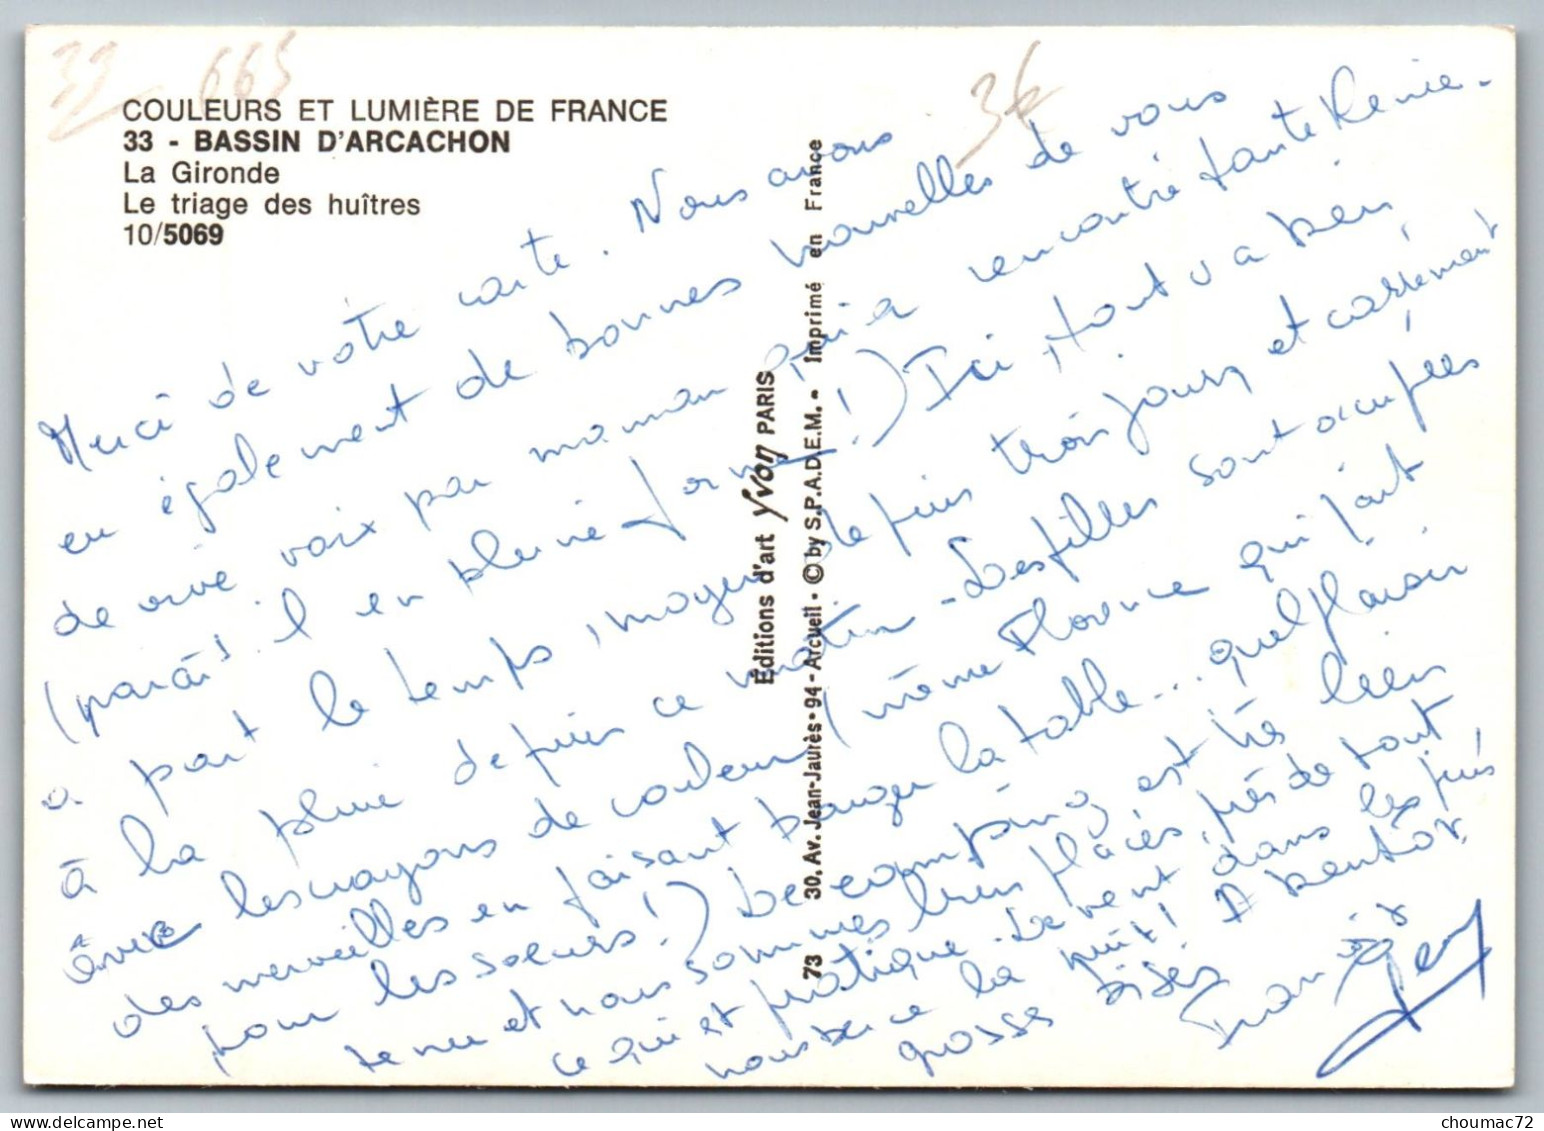 33 665
36
COULEURS ET LUMIÈRE DE FRANCE
33 - BASSIN D'ARCACHON
La Gironde
Le triage des huîtres
10/5069
Merci de votre carte. Nous avons
eu également de bonnes nouvelles de vous
de vive voix par maman qui a rencontré tante Renie.
(parait-il en pleine forme!) Ici, tout va bien
à part le temps, moyen depuis trois jours et carrément
à la pluie depuis ce matin - Les filles sont occupées
avec les crayons de couleur (même Florence qui fait
des merveilles en faisant bouger la table... quel plaisir
pour les soeurs!) Le camping est très bien
tenu et nous sommes bien placés, près de tout
ce qui est pratique. Le vent dans les pins
nous berce la nuit! A bientôt.
grosses bises
Editions d'art Yvon PARIS
73 30, Av. Jean-Jaurès • 94 - Arcueil • © by S.P.A.D.E.M. - Imprimé en France
choumac72